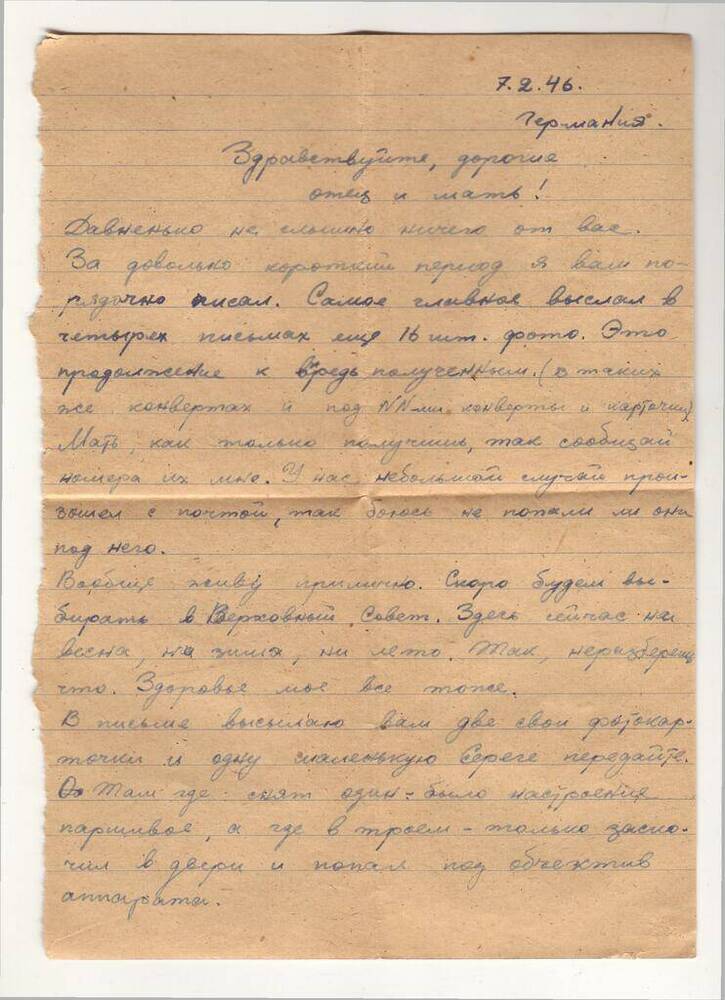 7.2.46.
Германия.
Здравствуйте, дорогие
отец и мать!
Давненько не слышно ничего от вас.
За довольно короткий период я вам по-
рядочно писал. Самое главное выслал в
четырех письмах еще 16 шт. фото. Это
продолжение к полученным. (в таких
же конвертах и под NN-ми конверты и карточки)
Мать, как только получишь, так сообщай
номера их мне. У нас небольшой случай прои-
зошел с почтой, так боюсь не попали ли они
под него.
Вообще живу прилично. Скоро будем вы-
бирать в Верховный Совет. Здесь сейчас ни
весна, ни зима, ни лето. Так, неразберешь
что. Здоровье мое все тоже.
В письме высылаю вам две свои фотокар-
точки и одну маленькую Сереге передайте.
Там где снят один - было настроение
паршивое, а где в троем - только заско-
чил в двери и попал под объектив
аппарата.